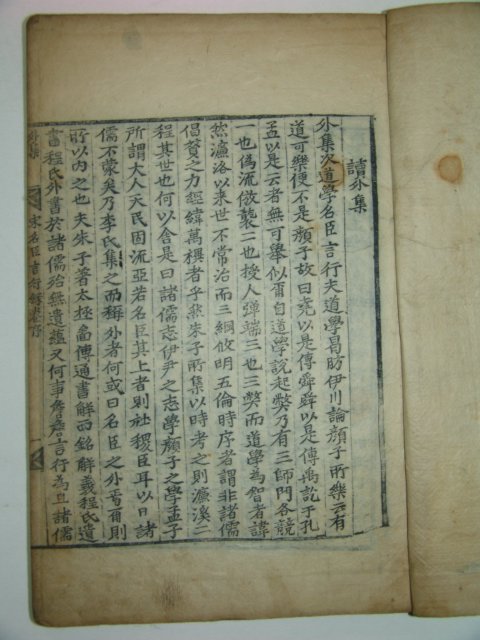 讀外集
外集次道學名臣言行夫道學昌昉伊川論顏子所樂云有
道可樂便不是顏子故曰堯以是傳舜舜以是傳禹訖于孔
孟以是云者無可舉似爾自道學說起獘乃有三師門各競
一也僞流倣襲二也授人彈端三也三獘而道學為智者諱
然濂洛以來世不常治而三綱攸明五倫時序者謂非諸儒
倡贊之力經緯萬樻者乎然朱子所集以時考之則濂溪二
程其世也何以舍是曰諸儒志伊尹之志學顏子之學孟子
所謂大人天民固流亞若名臣其上者則社稷臣耳以曰諸
儒不蒙矣乃李氏集之而稱外者何或曰名臣之外焉爾則
所以內之也夫朱子著太極啚傳通書解西銘解義程氏遺
書程氏外書於諸儒殆無遺蘊又何事詹詹言行為且諸儒
外集
宋名臣言行錄卷序
一